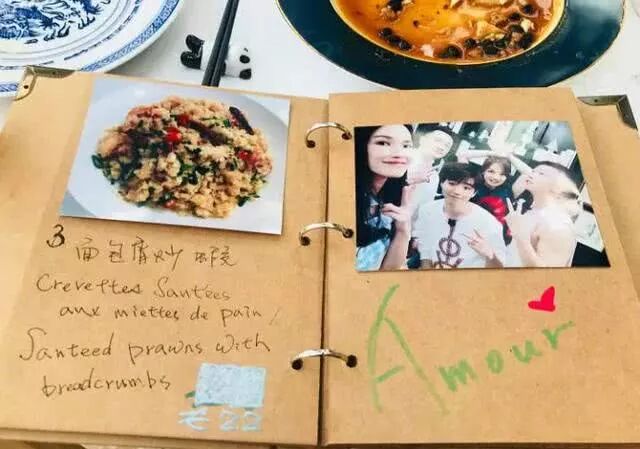 3 面包屑炒虾
Crevettes Sautées
aux miettes de pain /
Sauteed prawns with
breadcrumbs
€22
Amour